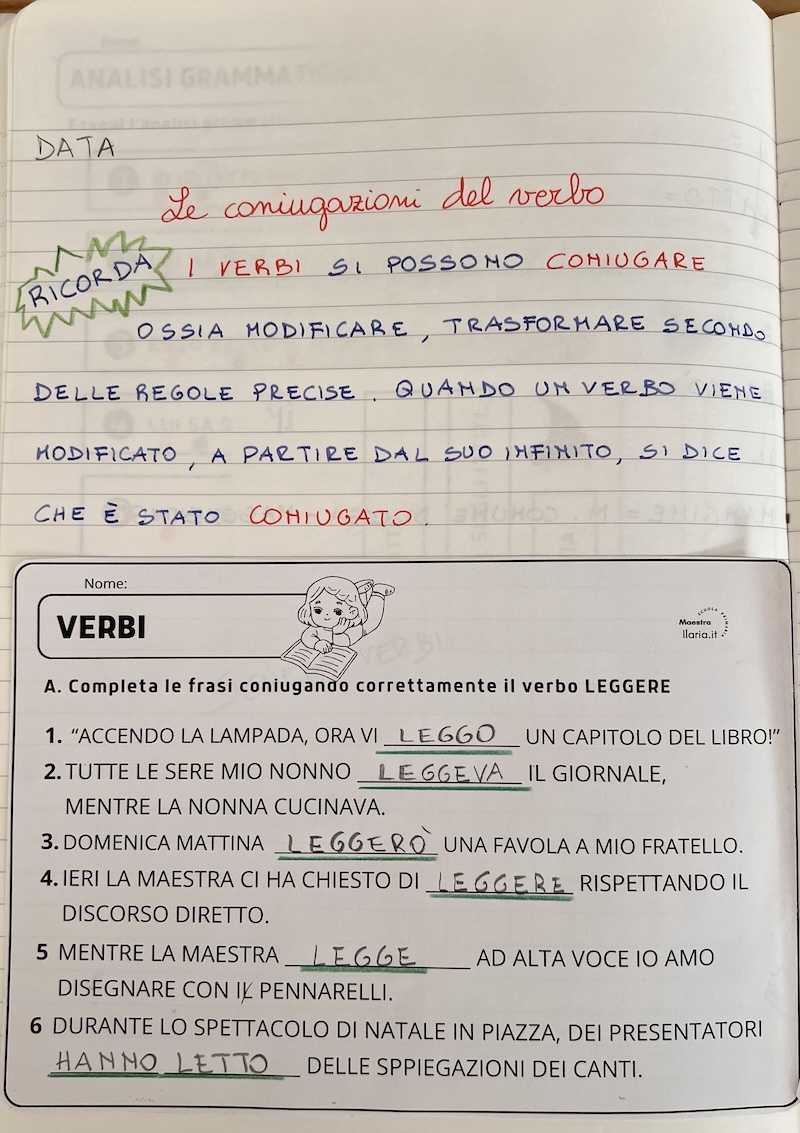 DATA
Le coniugazioni del verbo
RICORDA I VERBI SI POSSONO CONIUGARE
OSSIA MODIFICARE, TRASFORMARE SECONDO
DELLE REGOLE PRECISE. QUANDO UN VERBO VIENE
MODIFICATO, A PARTIRE DAL SUO INFINITO, SI DICE
CHE È STATO CONIUGATO.
Nome:
VERBI
SCUOLA PRIMARIA
Maestra
Ilaria.it
A. Completa le frasi coniugando correttamente il verbo LEGGERE
1. “ACCENDO LA LAMPADA, ORA VI LEGGO UN CAPITOLO DEL LIBRO!”
2. TUTTE LE SERE MIO NONNO LEGGEVA IL GIORNALE,
MENTRE LA NONNA CUCINAVA.
3. DOMENICA MATTINA LEGGERÒ UNA FAVOLA A MIO FRATELLO.
4. IERI LA MAESTRA CI HA CHIESTO DI LEGGERE RISPETTANDO IL
DISCORSO DIRETTO.
5 MENTRE LA MAESTRA LEGGE AD ALTA VOCE IO AMO
DISEGNARE CON IL PENNARELLI.
6 DURANTE LO SPETTACOLO DI NATALE IN PIAZZA, DEI PRESENTATORI
HANNO LETTO DELLE SPPIEGAZIONI DEI CANTI.